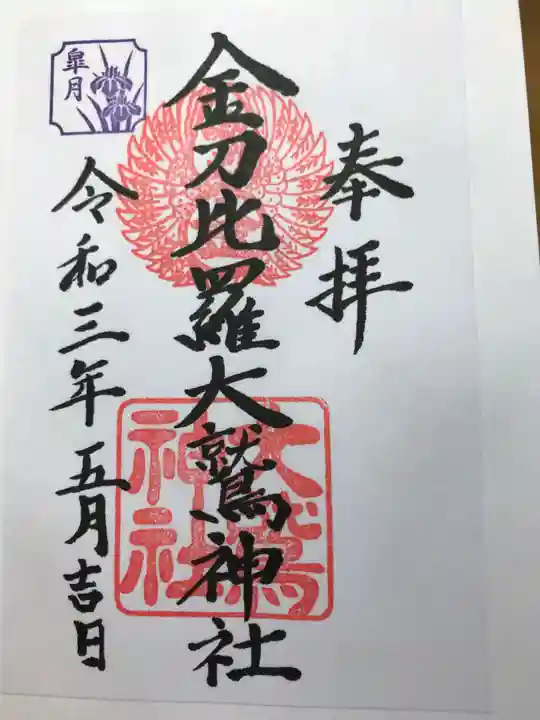 奉拝
金刀比羅大鷲神社
皐月
令和三年五月吉日
大鷲
神社